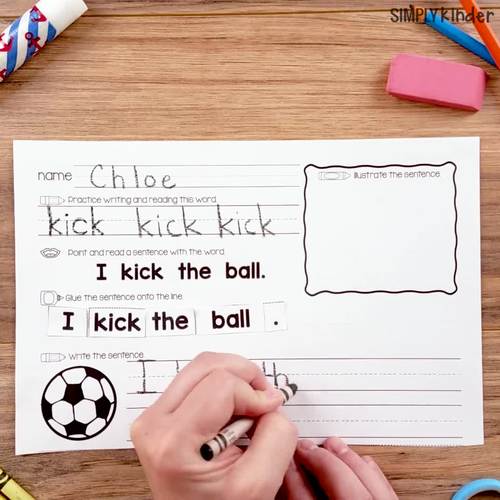 SIMPLYkinder
name Chloe
Illustrate the sentence.
Practice writing and reading this word.
kick kick kick
Point and read a sentence with the word.
I kick the ball.
Glue the sentence onto the line.
I kick the ball .
Write the sentence.
I